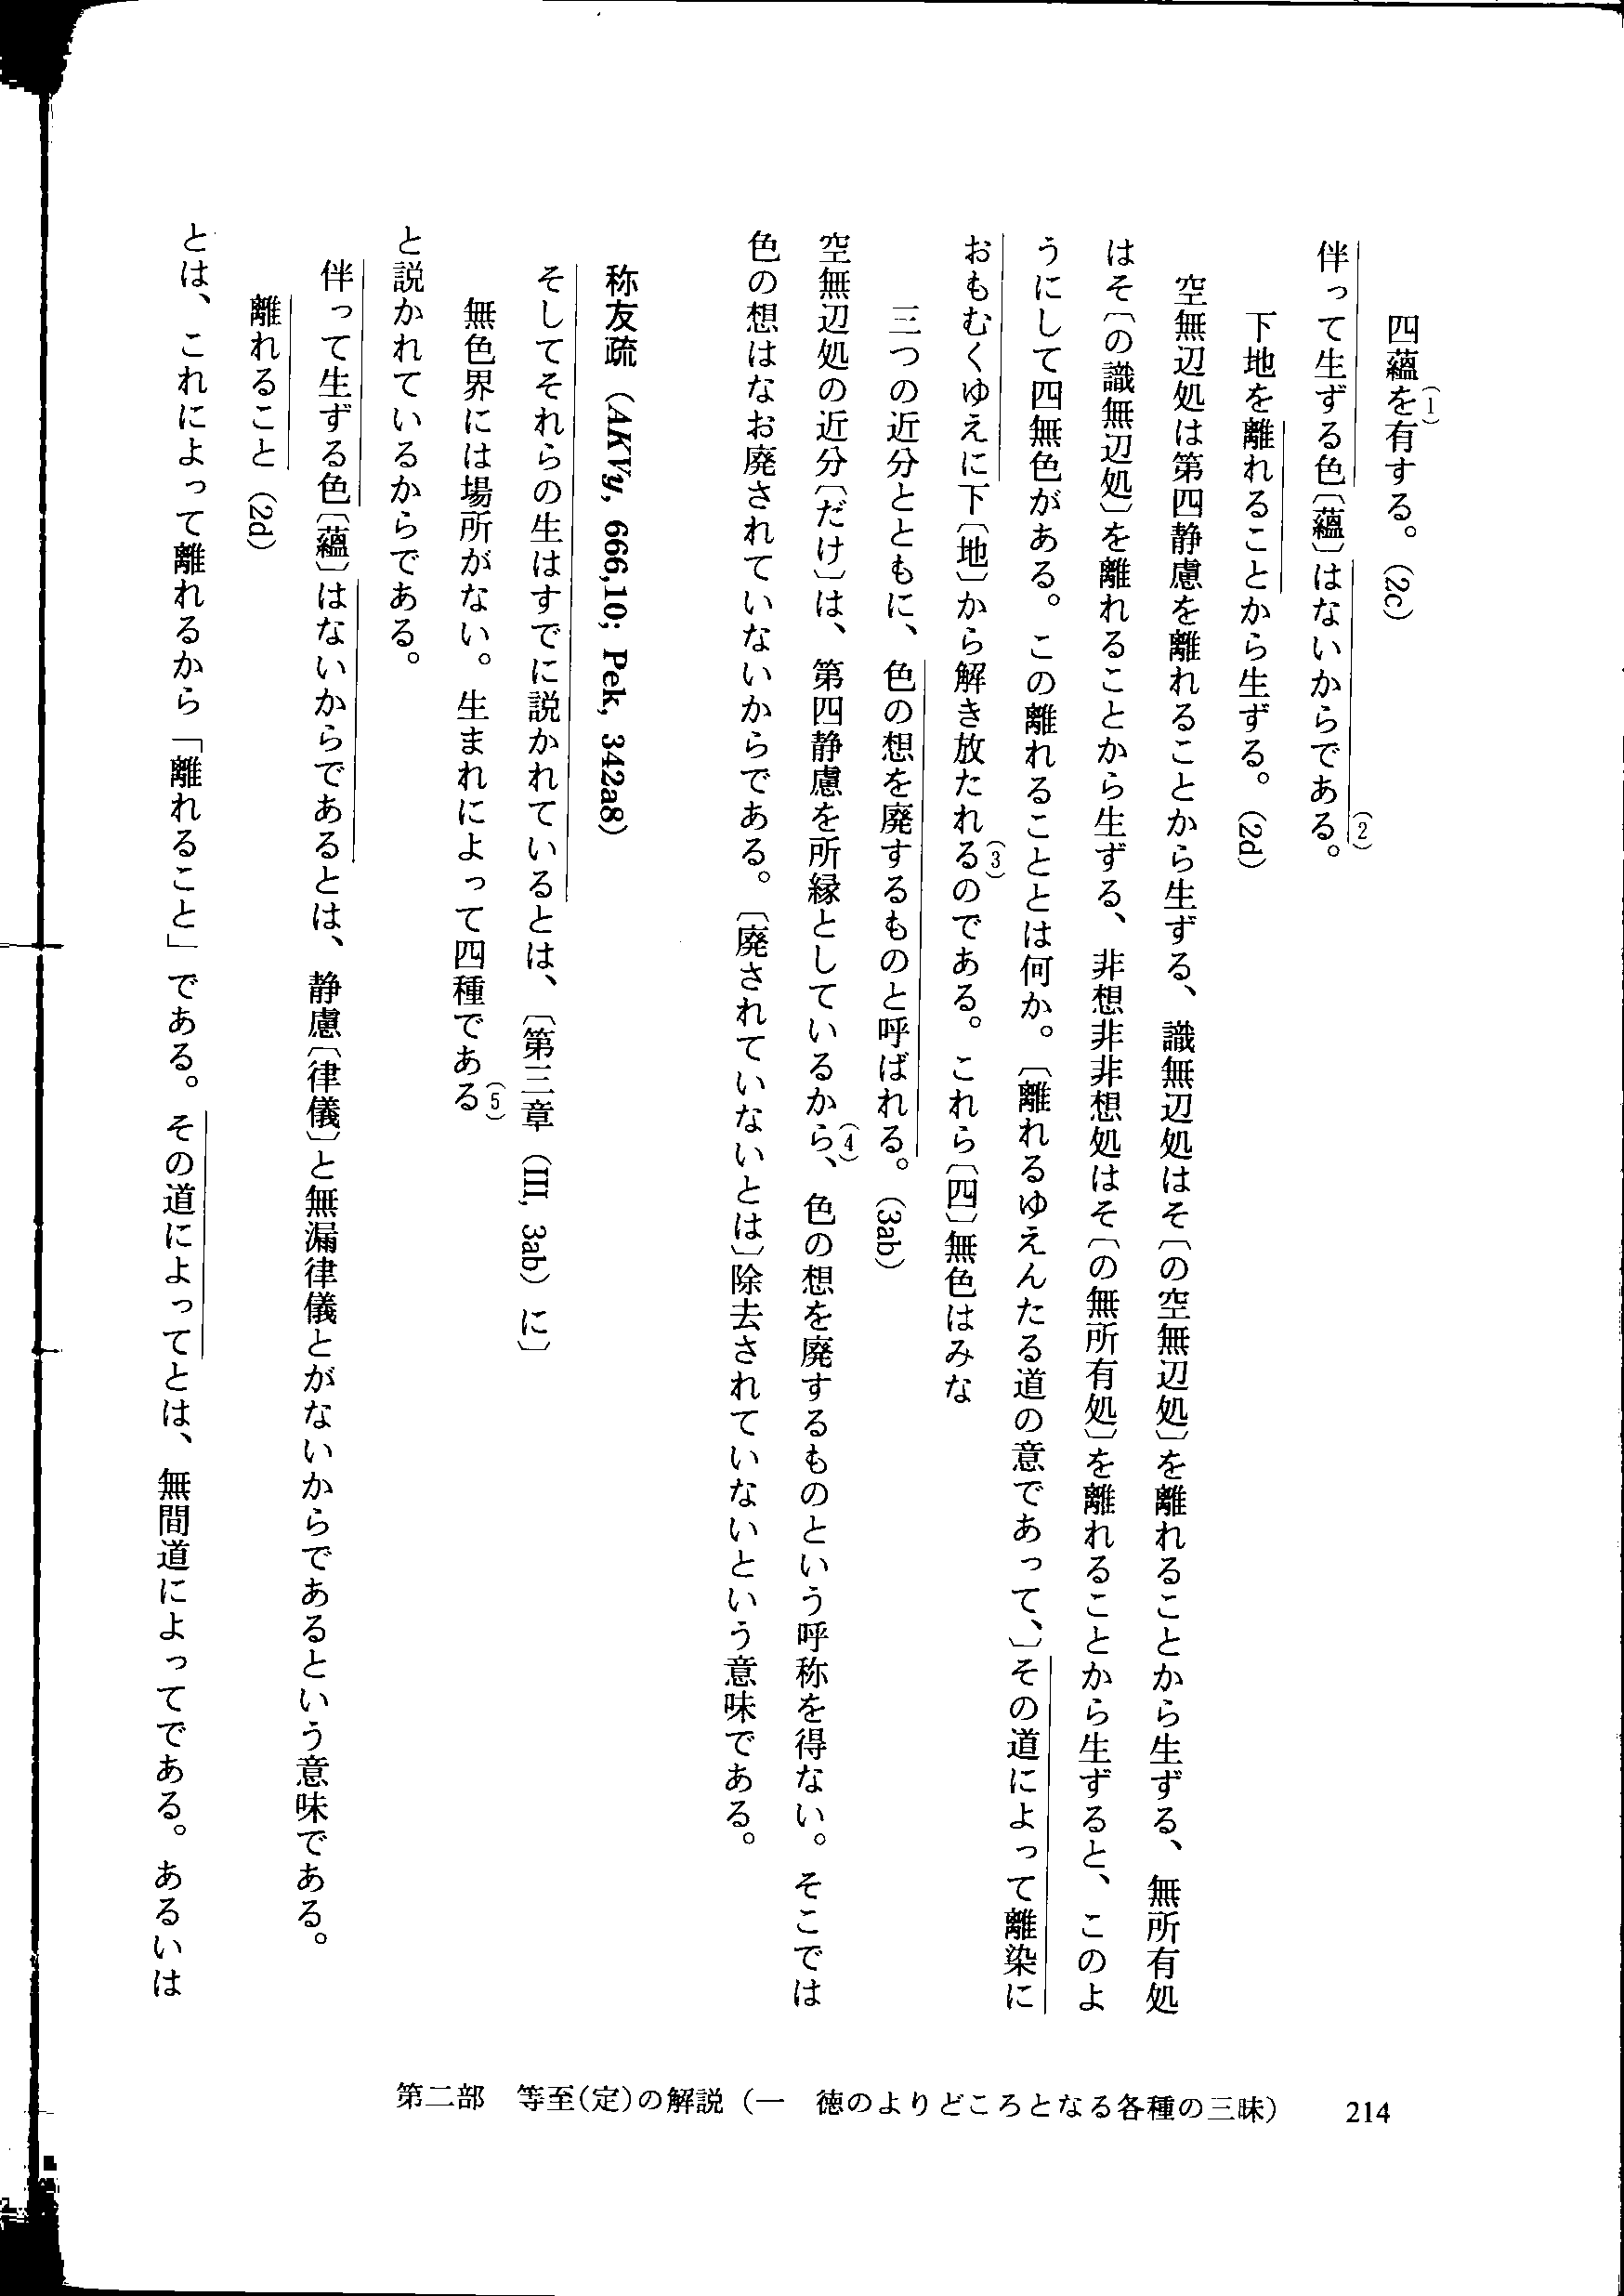 四蘊を(1)有する。(2c)
伴って生ずる色〔蘊〕はないからである(2)。
下地を離れることから生ずる。(2d)
空無辺処は第四静慮を離れることから生ずる、識無辺処はそ〔の空無辺処〕を離れることから生ずる、無所有処
はそ〔の識無辺処〕を離れることから生ずる、非想非非想処はそ〔の無所有処〕を離れることから生ずると、このよ
うにして四無色がある。この離れることとは何か。〔離れるゆえんたる道の意であって、〕その道によって離染に
おもむくゆえに下〔地〕から解き放たれる(3)のである。これら〔四〕無色はみな
三つの近分とともに、色の想を廃するものと呼ばれる。(3ab)
空無辺処の近分〔だけ〕は、第四静慮を所縁としているから(4)、色の想を廃するものという呼称を得ない。そこでは
色の想はなお廃されていないからである。〔廃されていないとは〕除去されていないという意味である。
称友疏(AKVy, 666,10; Pek, 342a8)
そしてそれらの生はすでに説かれているとは、〔第三章(III, 3ab)に〕
無色界には場所がない。生まれによって四種である(5)
と説かれているからである。
伴って生ずる色〔蘊〕はないからであるとは、静慮〔律儀〕と無漏律儀とがないからであるという意味である。
離れること(2d)
とは、これによって離れるから「離れること」である。その道によってとは、無間道によってである。あるいは
第二部 等至(定)の解説(一 徳のよりどころとなる各種の三昧) 214